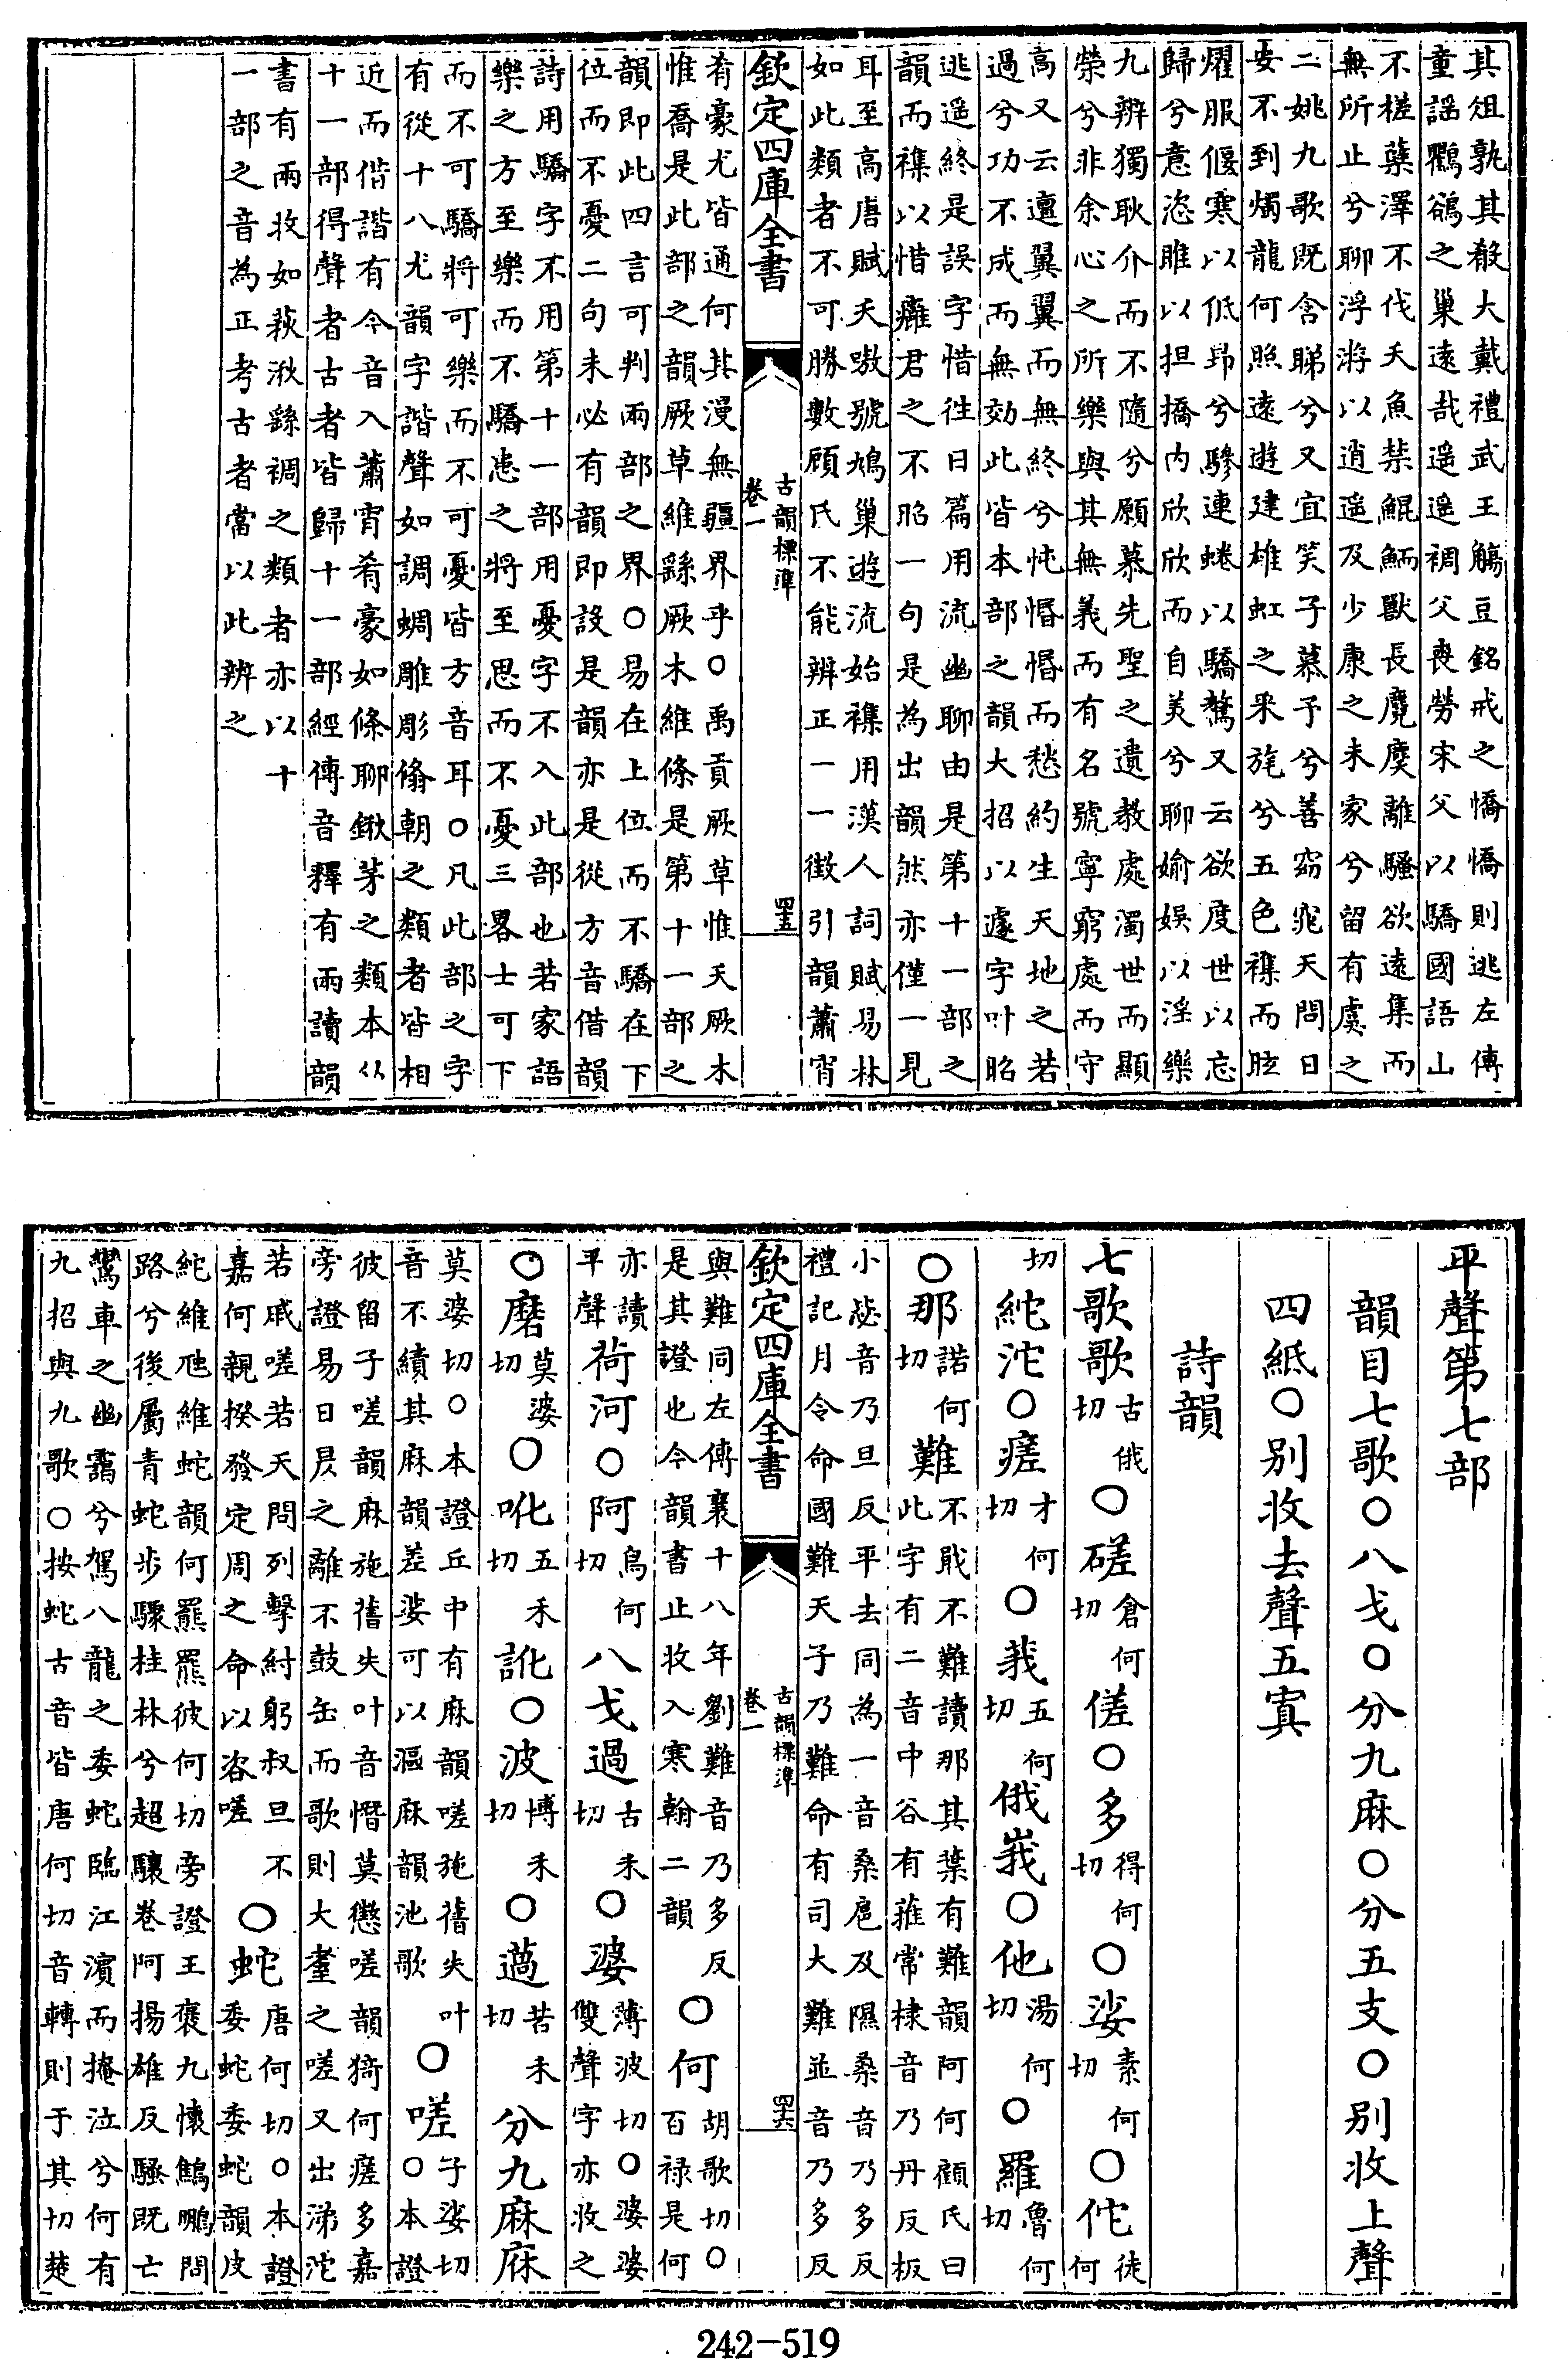 其俎孰其殺大戴禮武王觴豆銘戒之憍憍則逃左傳
童謡鸜鵒之巢遠哉遥遥裯父喪勞宋父以驕國語山
不槎蘖澤不伐夭魚禁鯤鮞獸長麑䴠離騷欲遠集而
無所止兮聊浮游以逍遥及少康之未家兮留有虞之
二姚九歌既含睇兮又宜笑子慕予兮善窈窕天問日
安不到燭龍何照遠遊建雄虹之采旄兮五色襍而眩
燿服偃寒以低昻兮驂連蜷以驕驁又云欲度世以忘
歸兮意恣睢以担撟内欣欣而自美兮聊媮娛以淫樂
九辨獨耿介而不隨兮願慕先聖之遺教處濁世而顯
榮兮非余心之所樂與其無義而有名號寧窮處而守
高又云邅翼翼而無終兮忳惛惛而愁約生天地之若
過兮功不成而無効此皆本部之韻大招以遽字叶昭
逃遥終是誤字惜往日篇用流幽聊由是第十一部之
韻而襍以惜癰君之不昭一句是為出韻然亦僅一見
耳至高唐賦夭嗷號鳩巢遊流始襍用漢人詞賦易林
如此類者不可勝數顧氏不能辨正一一徵引韻蕭宵
欽定四庫全書
古韻標準
卷一
四五
肴豪尤皆通何其漫無疆界乎○禹貢厥草惟夭厥木
惟喬是此部之韻厥草維繇厥木維條是第十一部之
韻即此四言可判兩部之界○易在上位而不驕在下
位而不憂二句未必有韻即設是韻亦是從方音借韻
詩用驕字不用第十一部用憂字不入此部也若家語
樂之方至樂而不驕恚之將至思而不憂三畧士可下
而不可驕將可樂而不可憂皆方音耳○凡此部之字
有從十八尤韻字諧聲如調蜩雕彫翛朝之類者皆相
近而偕諧有今音入蕭宵肴豪如條聊鍬茅之類本从
十一部得聲者古者皆歸十一部經傳音釋有兩讀韻
書有兩收如萩湫繇裯之類者亦以十
一部之音為正考古者當以此辨之
平聲第七部
韻目七歌○八戈○分九麻○分五支○别收上聲
四紙○别收去聲五寘
詩韻
七歌歌古俄切○磋倉何切傞○多得何切○娑素何切○佗徒何
切紽沱○瘥才何切○莪五何切俄峩○他湯何切○羅魯何切
○那諾何切難不戢不難讀那其葉有難韻阿何顧氏曰
此字有二音中谷有蓷常棣音乃丹反板
小毖音乃旦反平去同為一音桑扈及隰桑音乃多反
禮記月令命國難天子乃難命有司大難並音乃多反
欽定四庫全書
古韻標準
卷一
四六
與難同左傳襄十八年劉難音乃多反
是其證也今韻書止收入寒翰二韻
○何胡歌切○百禄是何
亦讀平聲荷河○阿烏何切八戈過古禾切○婆薄波切○婆娑雙聲字亦收之
○磨莫婆切○吪五禾切訛○波博禾切○薖苦禾切分九麻麻
莫婆切○本證丘中有麻韻嗟施舊失叶
音不績其麻韻差娑可以漚麻韻池歌
○嗟子娑切○本證
彼留子嗟韻麻施舊失叶音憯莫懲嗟韻猗何瘥多嘉
旁證易日昃之離不鼓缶而歌則大耋之嗟又出涕沱
若戚嗟若天問列擊紂躬叔旦不
嘉何親揆發定周之命以咨嗟
○蛇唐何切○本證
委蛇委蛇韻皮
紽維虺維蛇韻何羆羆彼何切旁證王襃九懷鷦鵬開
路兮後屬青蛇步驟桂林兮超驤卷阿揚雄反騷既亡
鸞車之幽靄兮駕八龍之委蛇臨江濵而掩泣兮何有
九招與九歌○按蛇古音皆唐何切音轉則于其切楚
242-519